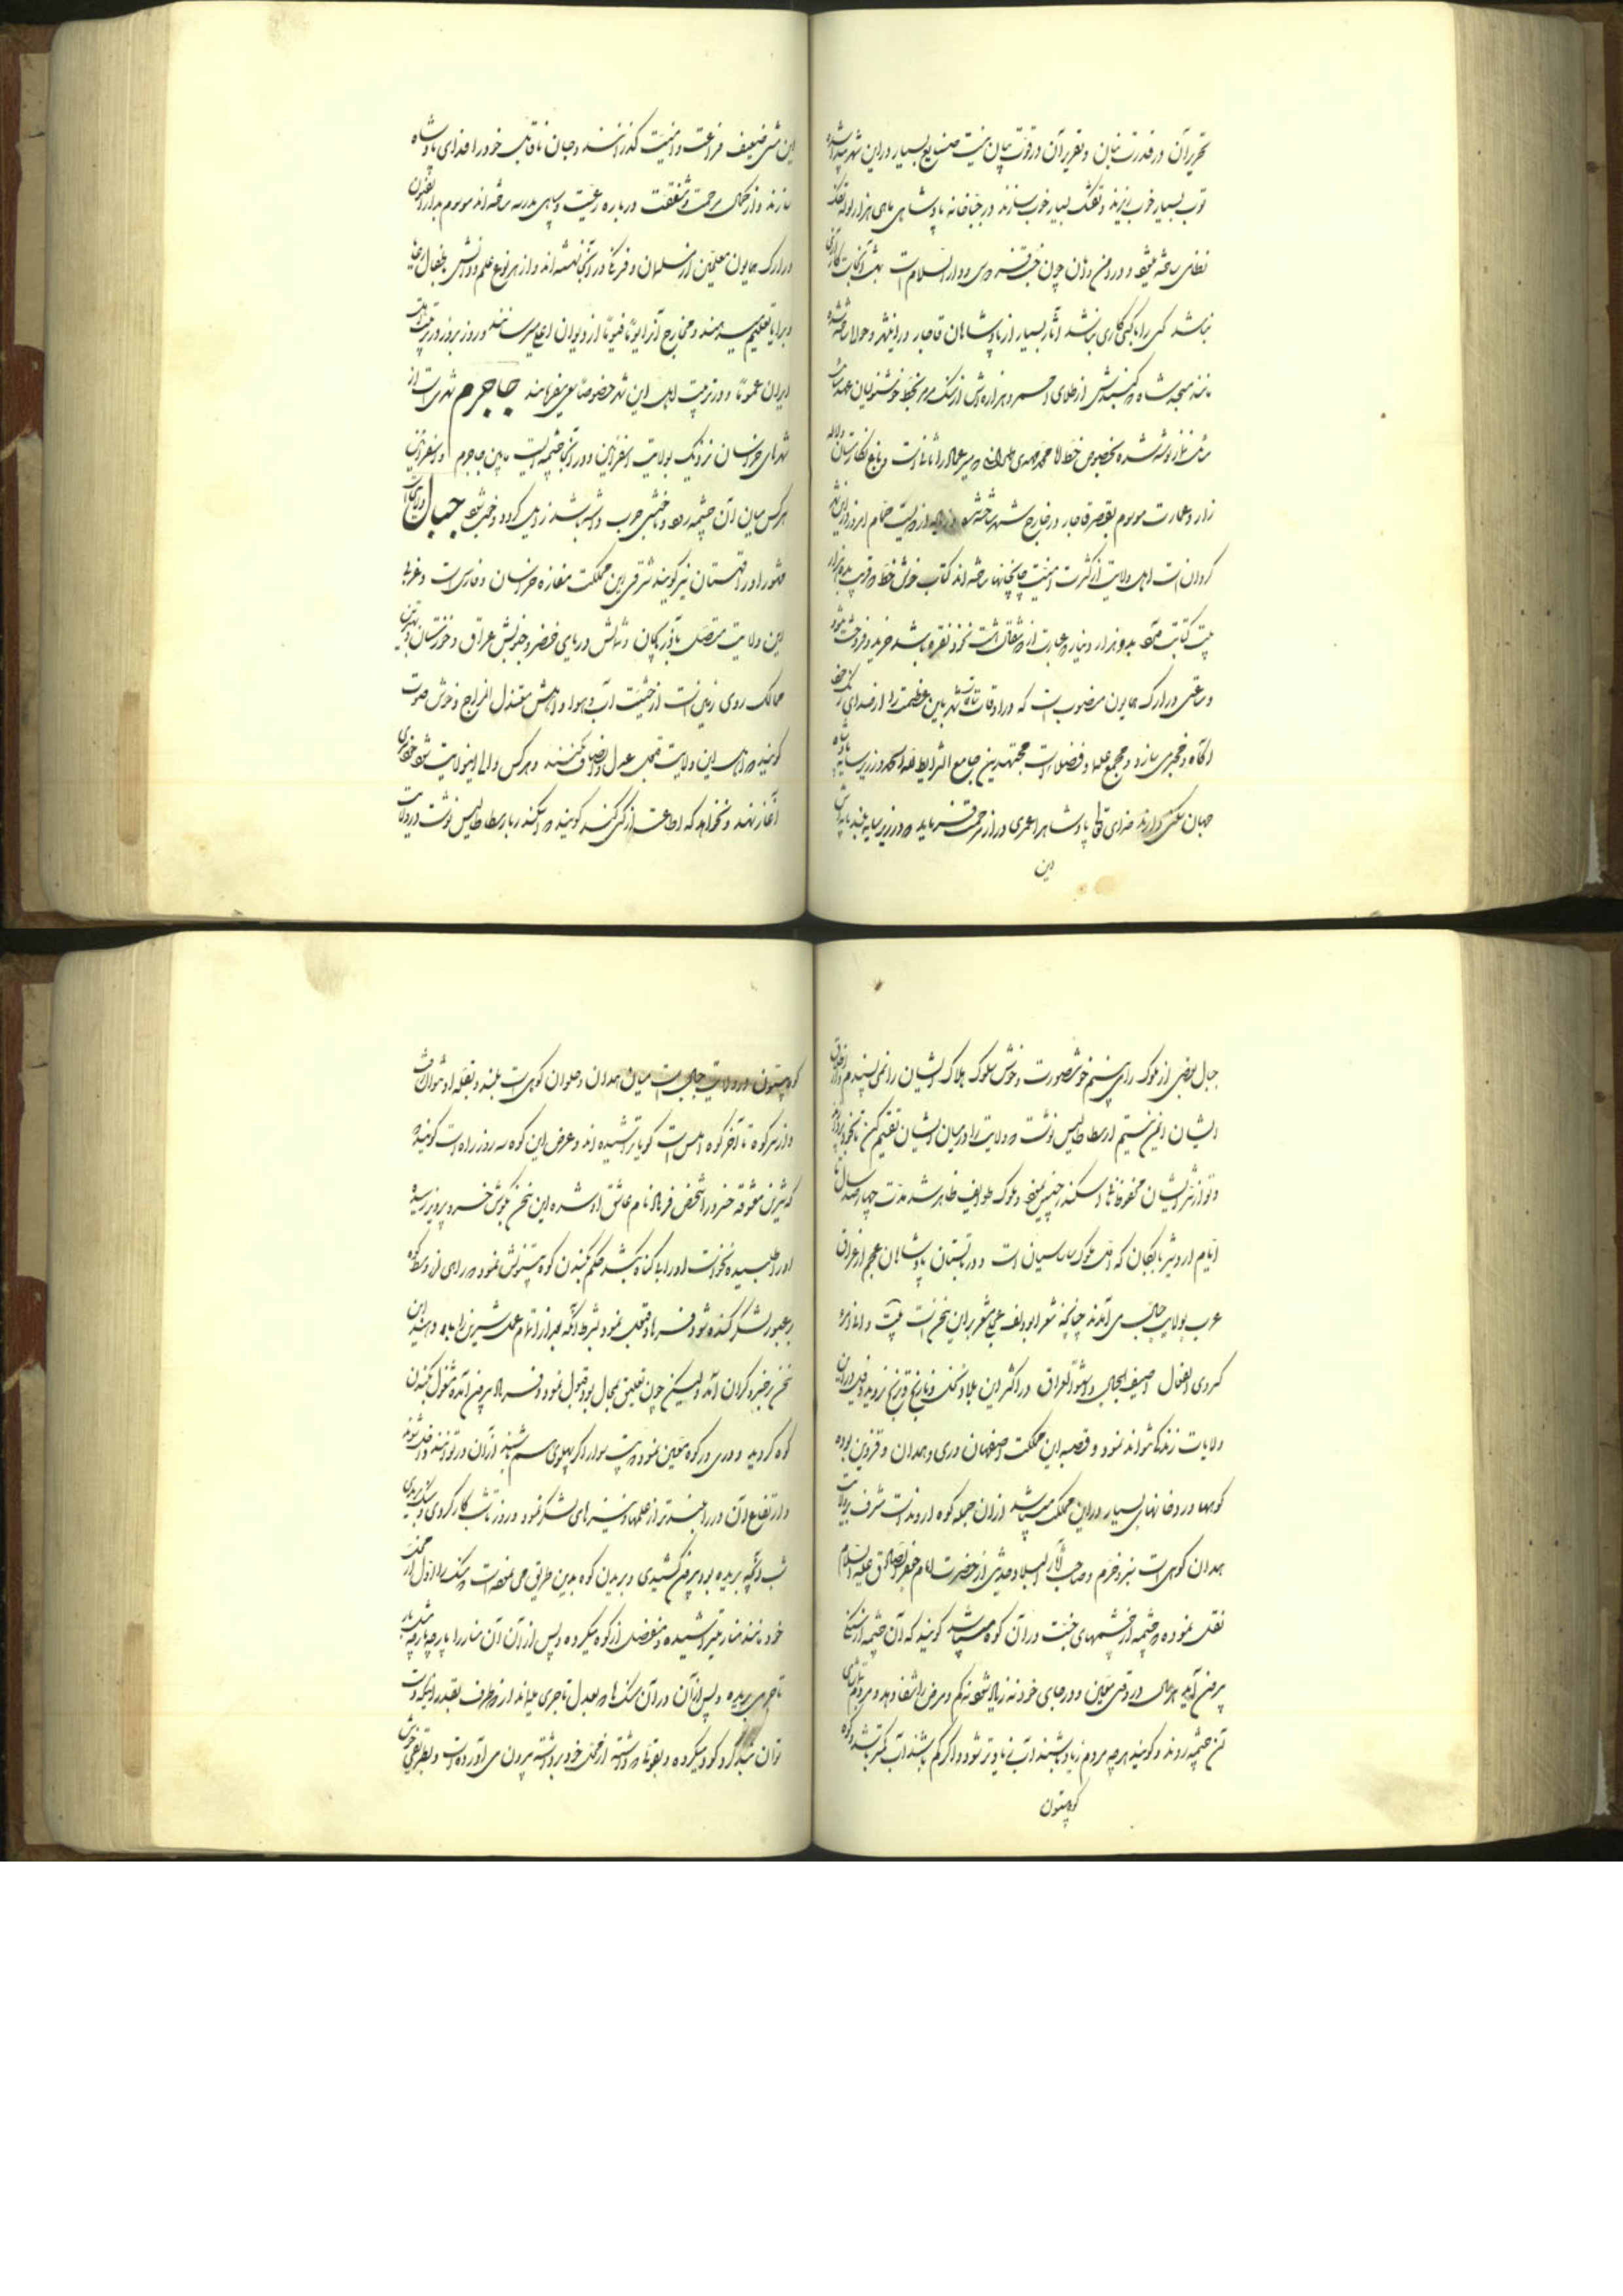 تحریر آن در قدرت بنان و تقریر آن در قوت بیان نیست صنایع بسیار در این شهر پیدا شده
توپ بسیار خوب ریزند و تفنگ بسیار خوب سازند در جباخانه پادشاهی ماهی هزار لوله تفنگ
نظامی ساخته میشود و در و امان چون و دار السلام است بهشت آنجاست کازاری
نباشد کسی را با کسی کاری نباشد آثار بسیار از پادشاهان قاجار در اینشهر و حوالی ساخته شده
مانند مسجد شاه که گنبدش از طلای احمر و هزاره‌اش از سنگ مرمر بخط خوشنویسان عهد
نوشته شده بخصوص خط ملا محمد مهدی طهرانی که میرعماد را ثانی است و باغ نگارستان و لاله
زار و عمارت موسوم بقصر قاجار در خارج شهر ساخته شده حمام امروز از این شهر
گردانست اهل ولایت از کثرت امنیت چاپخانها ساخته اند کتاب خوش خط که قریب پانزده هزار
بیت کتابت بدو هزار دینار که عبارت از مثقال نقره باشد خرید و فروخت میشود
و ساعتی در ارک همایون منصوب است که در اوقات شهر باین عظمت را از صدای زنک خود
آگاه و مخبر می سازد و مجمع علما و فضلاء است مجتهدین جامع الشرایط در زیر سایه پادشاه
جهان سکنی دارند خدای تعالی پادشاه را عمری دراز مرحمت فرماید که در زیر سایه بلند پایه اش
این
این مشتی ضعیف فراغت و امنیت گذرانند و جان ناقابل خود را فدای پادشاه
سازند و از کمال مرحمت و شفقت درباره رعیت و سپاهی مدرسه ساخته اند موسوم بدار الفنون
در ارک همایون معلمین از مسلمان و فرنگ در آنجا نشسته اند و از هر نوع علم و دانش بطفال رعایا
و برایا تعلیم میدهند و مخارج آنرا یوما فیوما از دیوان اعلی میرسانند و روز بروز در تربیت اهل
ایران عموما و در تربیت اهل این شهر خصوصا سعی میفرمایند جاجرم شهری است از
شهرهای خراسان نزدیک بولایت اسفراین و در آنجا چشمه ایست مابین جاجرم و اسفراین
هر کس میان آن چشمه رود و ناخوشی جرب داشته باشد زایل گردد و خوب شود جبال
مشهور و او را قهستان نیز گویند شرقی این مملکت مفازه خراسان و فارس است و غربی
این ولایت متصل بآذربایجان و شمالش دریای خضر و جنوبش عراق و خوزستان و بهترین
ممالک روی زمین است از حیثیت آب و هوا و اهلش معتدل المزاج و خوش صورت
گویند که اهل این ولایت قبول عدل و انصاف نکنند و هر کس والی این ولایت شود خودسری
آغاز نهند و نخواهد که اطاعت از کسی کند گویند که اسکندر بارسطاطالیس نوشت در ولایت
جبال بعضی از ملوک را می بینم خوش صورت و خوش سلوک هلاک ایشان را نمی پسندم و از اطلاق
ایشان ایمن نیستم ارسطاطالیس نوشت که ولایت را در میان ایشان تقسیم کن تا بخود پردازند
و تو از شر ایشان محفوظ باشی اسکندر چنین نمود و ملوک طوایف ظاهر شد مدت چهارصد سال تا
ایام اردشیر بابکان که اول ملوک ساسیان است و در تابستان پادشاهان عجم از عراق
عرب بولایت جبال می آمدند چنانچه شعر ابودلف عجلی مشعر بر این سخن است بیت و انا امرء
کسروی الفعال اصیف الجبال و اشتو العراق در اکثر این بلاد نخل و نارنج و ترنج نروید و فیل در این
ولایات زندگی نتواند نمود و قصبه این مملکت اصفهان و ری و همدان و قزوین بوده
کوهها و رودخانهای بسیار در این مملکت میباشد از آن جمله کوه اروند است مشرف بر ولایت
همدان کوهی است سبز و خرم و صاحب آثار البلاد حدیثی از حضرت امام جعفر الصادق علیه السلام
نقل نموده که چشمه از چشمهای جنت در آن کوه میباشد گویند که آن چشمه از سنگی
بیرون آید هر سال در وقتی معین و در جای خود نه زیاد شود نه کم و مرض را شفا دهد و مردم بتماشای
آن چشمه روند و گویند هر چه مردم زیاد باشند آب زیادتر شود و اگر کم باشند آب کمتر باشد و کوه
کوه بیستون
کوه بیستون در ولایت جبال است میان همدان و حلوان کوهی است بلند و بقله او نتوان رفت
و از سر کوه تا آخر کوه املس است گویا تراشیده اند و عرض این کوه سه روز راه است گویند
که شیرین معشوقه خسرو را شخص فرهاد نام عاشق او شده این سخن بگوش خسرو پرویز رسیده
او را طلبیده نخواست او را بی گناه بکشد حکم بکندن کوه بیستونش نمود که راهی از وسط کوه
بر عبور لشکر کنده شود فرهاد قبول نمود بشرط آنکه بعد از اتمام عمل شیرین را باو دهند این
سخن بر خسرو گران آمد ولیکن چون تعلیق بمحال بود قبول نمود و فرهاد بیرون آمده مشغول بکندن
کوه گردید و دری در کوه معین نمود که بیست سوار اگر پهلوی هم باشند از آن در توانند داخل شوند
و ارتفاع آن در را بلندتر از علمها و نیزه های لشکر نمود و روز تا شب کار کردی و سنگ بریدی
شب آنچه بریده بود بیرون کشیدی و بریدن کوه بدین طریق می نموده است که سنگ را اول از
خود مانند منار میتراشیده و منفصل از کوه میکرده و پس از آن آن منار را پارچه پارچه مثل پل
تا آخر می بریده و پس از آن در آن سنگها که بعدل تاجری میماند از دو طرف بقدر اینکه دست
توان بند کرد گود میکرده و بقوتی که داشته از محل خود برداشته بیرون می آورده است و بطریق خوش